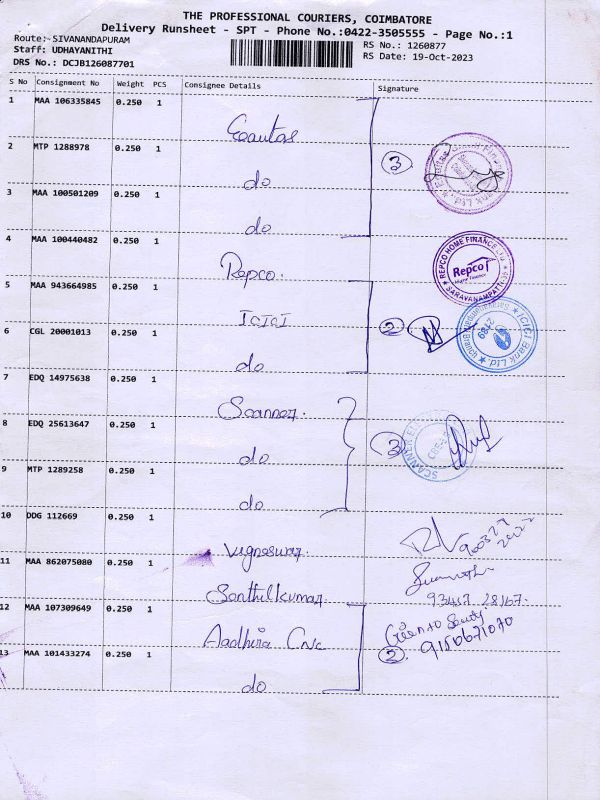 THE PROFESSIONAL COURIERS, COIMBATORE
Delivery Runsheet - SPT - Phone No.:0422-3505555 - Page No.:1
Route:- SIVANANDAPURAM
Staff: UDHAYANITHI
DRS No.: DCJB126087701
RS No.: 1260877
RS Date: 19-Oct-2023
S No Consignment No Weight PCS Consignee Details Signature
1 MAA 106335845 0.250 1
2 MTP 1288978 0.250 1 do
3 MAA 100501209 0.250 1 do
3
4 MAA 100440482 0.250 1 Repco.
REPCO HOME FINANCE LTD
Repco
Home Finance
SARAVANAMPATTI
5 MAA 943664985 0.250 1 ICICI
6 CGL 20001013 0.250 1 do
2
ICICI Bank Ltd.
7 EDQ 14975638 0.250 1 Scanner
8 EDQ 25613647 0.250 1 do
9 MTP 1289258 0.250 1 do
3
10 DDG 112669 0.250 1
11 MAA 862075080 0.250 1 Santhilkumar
12 MAA 107309649 0.250 1 Aadhira CNC
13 MAA 101433274 0.250 1 do
2
9150671070